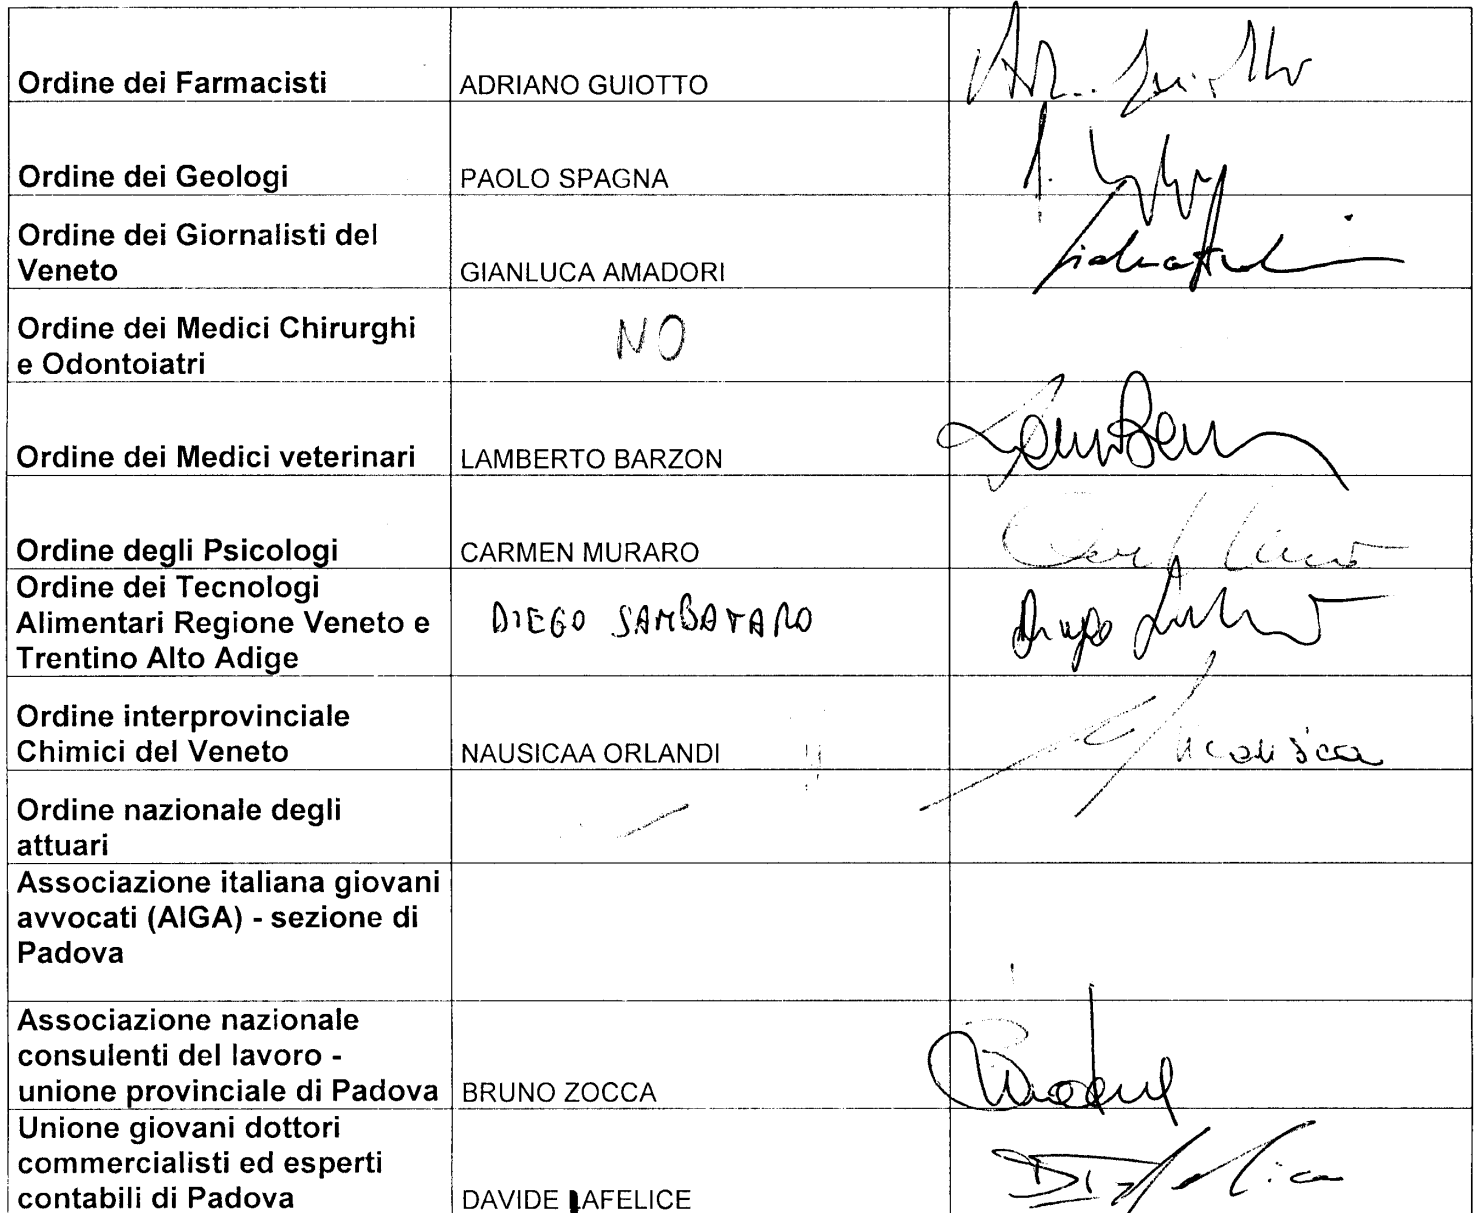 Ordine dei Farmacisti ADRIANO GUIOTTO
Ordine dei Geologi PAOLO SPAGNA
Ordine dei Giornalisti del
Veneto GIANLUCA AMADORI
Ordine dei Medici Chirurghi
e Odontoiatri NO
Ordine dei Medici veterinari LAMBERTO BARZON
Ordine degli Psicologi CARMEN MURARO
Ordine dei Tecnologi
Alimentari Regione Veneto e DIEGO SAMBATARO
Trentino Alto Adige
Ordine interprovinciale
Chimici del Veneto NAUSICAA ORLANDI
Ordine nazionale degli
attuari
Associazione italiana giovani
avvocati (AIGA) - sezione di
Padova
Associazione nazionale
consulenti del lavoro -
unione provinciale di Padova BRUNO ZOCCA
Unione giovani dottori
commercialisti ed esperti
contabili di Padova DAVIDE LAFELICE